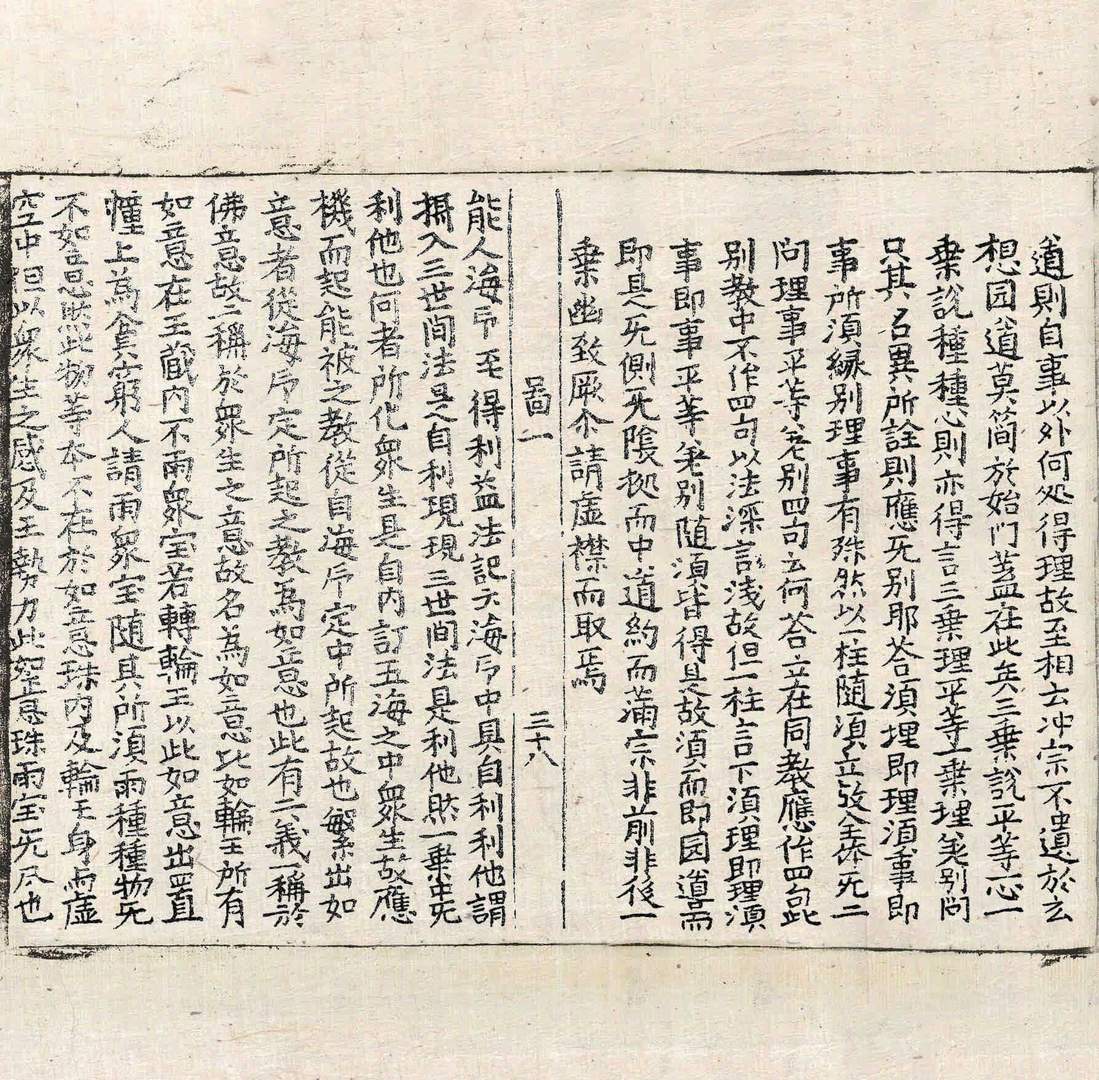 道則自事以外何処得理故至相云冲宗不遺於玄
想园道莫简於始門蓋在此矣三乗說平等心一
乗說種種心則亦得言三乗理平等一乗理差別問
只其名異所詮則應旡別耶荅湏理即理湏事即
事所湏縁別理事有殊然以一柱随湏立故全体旡二
問理事平等差別四句云何荅立在同教應作四句此
別教中不作四句以法深言浅故但一柱言下湏理即理湏
事即事平等差別随湏皆得是故湏而即园噵而
即具旡側旡隂拠而中道約而蒲宗非前非後一
乗幽致厥尒請虚襟而取焉
啚一　三十八
能人海印至得利益法記云海印中具自利利他謂
攝入三世間法是自利現現三世間法是利他然一乗中旡
利他也何者所化衆生是自内訂五海之中衆生故應
機而起能被之教從自海印定中所起故也繁出如
意者從海印定所起之教為如意也此有二義一稱於
佛意故二稱於衆生之意故名為如意比如輪王所有
如意在王藏内不雨衆宝若轉輪王以此如意出置
幢上為貧窮人請雨衆宝随其所湏雨種種物旡
不如意然此物等本不在於如意珠内及輪王身与虚
空中但以衆生之感及王勢力此如意珠雨宝旡尽也